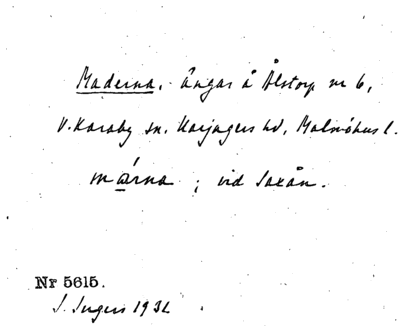 Maderna, ängar å Ålstorp nr 6,
V. Karaby sn. Harjagers hd, Malmöhus l.
mɑ̀rna ; vid Saxån.
Nr 5615.
I. Ingers 1932